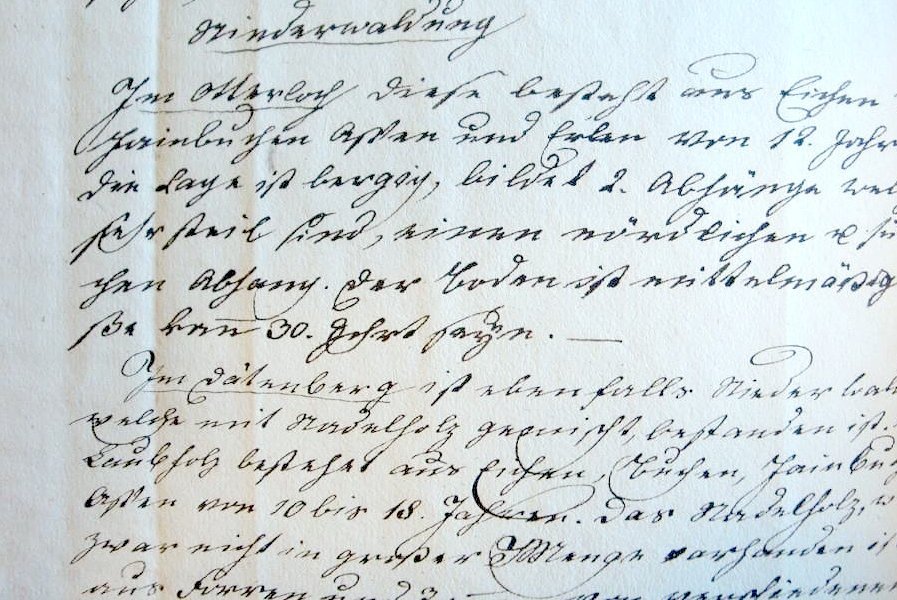 Niederwaldung
Im Otterloch diese besteht aus Eichen
Hainbuchen Assen und Erlen von 12. Jahr
die Lage ist bergig, bildet 2. Abhänge wel
sehr steil sind, einen nördlichen u sü
chen Abhang. Der Boden ist mittelmäßig
ße kann 30. Jchrt seyn. —
Im Dätenberg ist ebenfalls Niederwal
welche mit Nadelholz gemischt, bestanden ist.
Laubholz bestehet aus Eichen, Buchen, Hainbu
Assen von 10 bis 18. Jahren. Das Nadelholz, w
zwar nicht in großer Menge vorhanden is
aus Forren und von verschiedenen